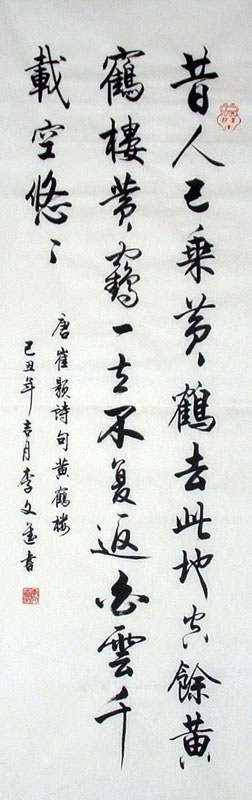 昔人已乘黄鶴去此地空餘黄
鶴樓黄鶴一去不复返白雲千
載空悠〻
唐崔顥詩句黄鶴樓
己丑年吉月李文書